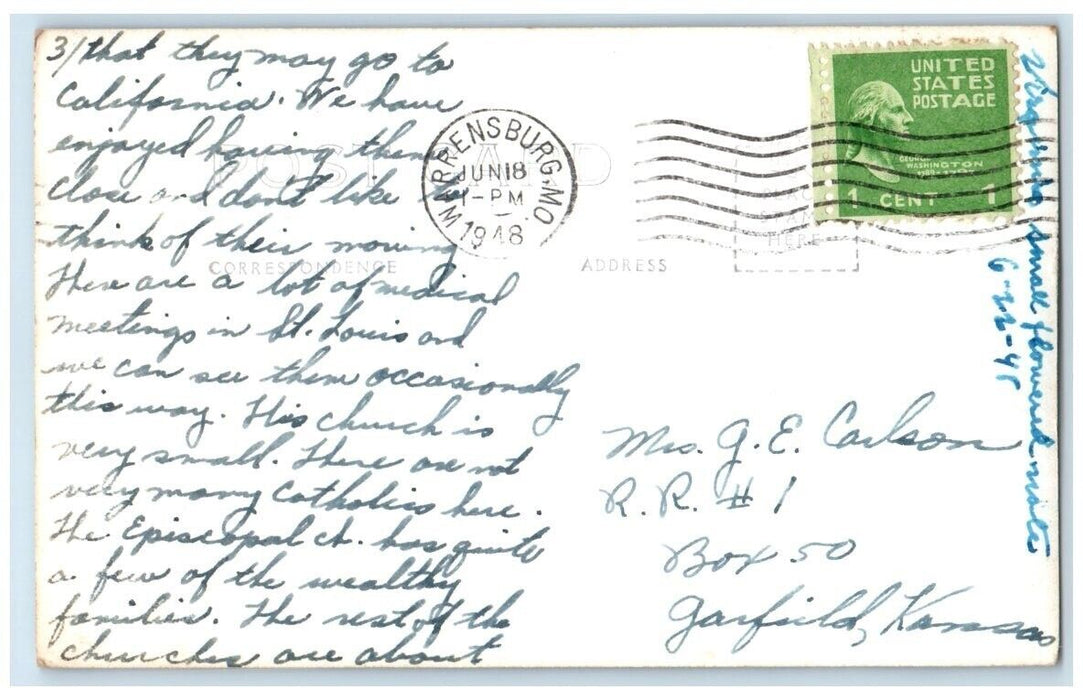 3/ that they may go to
California. We have
enjoyed having them
close and don't like to
think of their moving
There are a lot of medical
meetings in St. Louis and
we can see them occasionally
this way. His church is
very small. There are not
very many Catholics here.
The Episcopal ch. has quite
a few of the wealthy
families. The rest of the
churches are about
POST CARD
CORRESPONDENCE
ADDRESS
PLACE
STAMP
HERE
WARRENSBURG, MO.
JUN 18
1-PM
1948
UNITED
STATES
POSTAGE
GEORGE
WASHINGTON
1789-1797
1 CENT 1
Mrs. G. E. Carlson
R. R. # 1
Box 50
Garfield, Kansas
small flowered
6-22-48